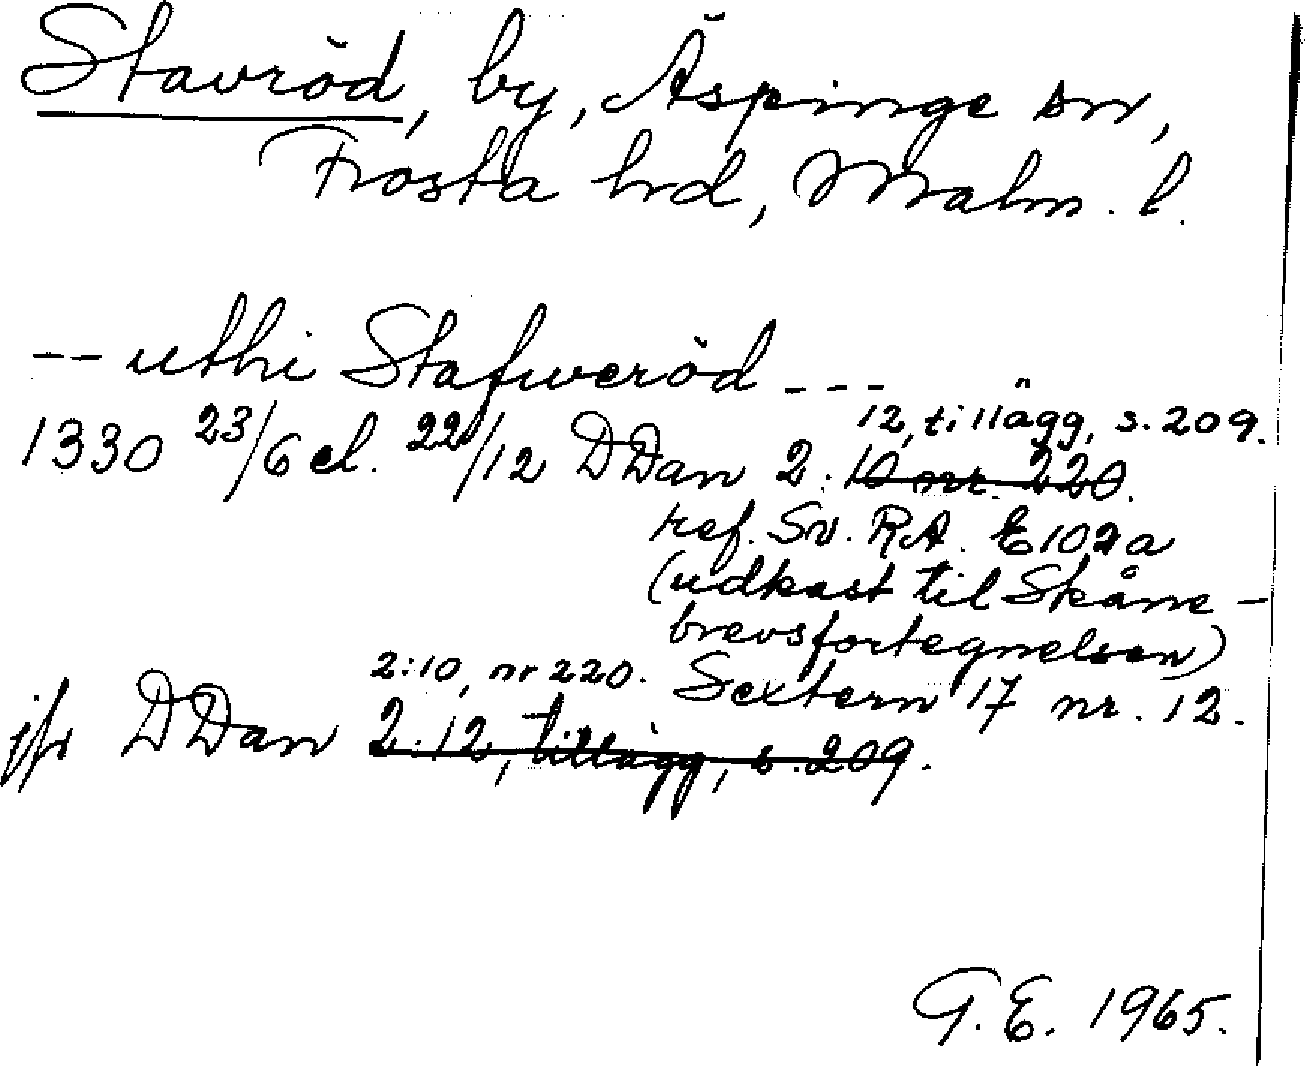 Stavröd, by, Äspinge sn,
Frosta hd, Malm. l.
-- uthi Stafweröd ---
12, tillägg, s. 209.
1330 23/6 el. 22/12 DDan 2: 10 nr. 220.
ref. Sv. RA. E 102a
(udkast til Skåne-
brevsfortegnelsen)
2:10, nr 220. Sextern 17 nr. 12.
jfr DDan 2:12, tillägg, s. 209.
G. E. 1965.